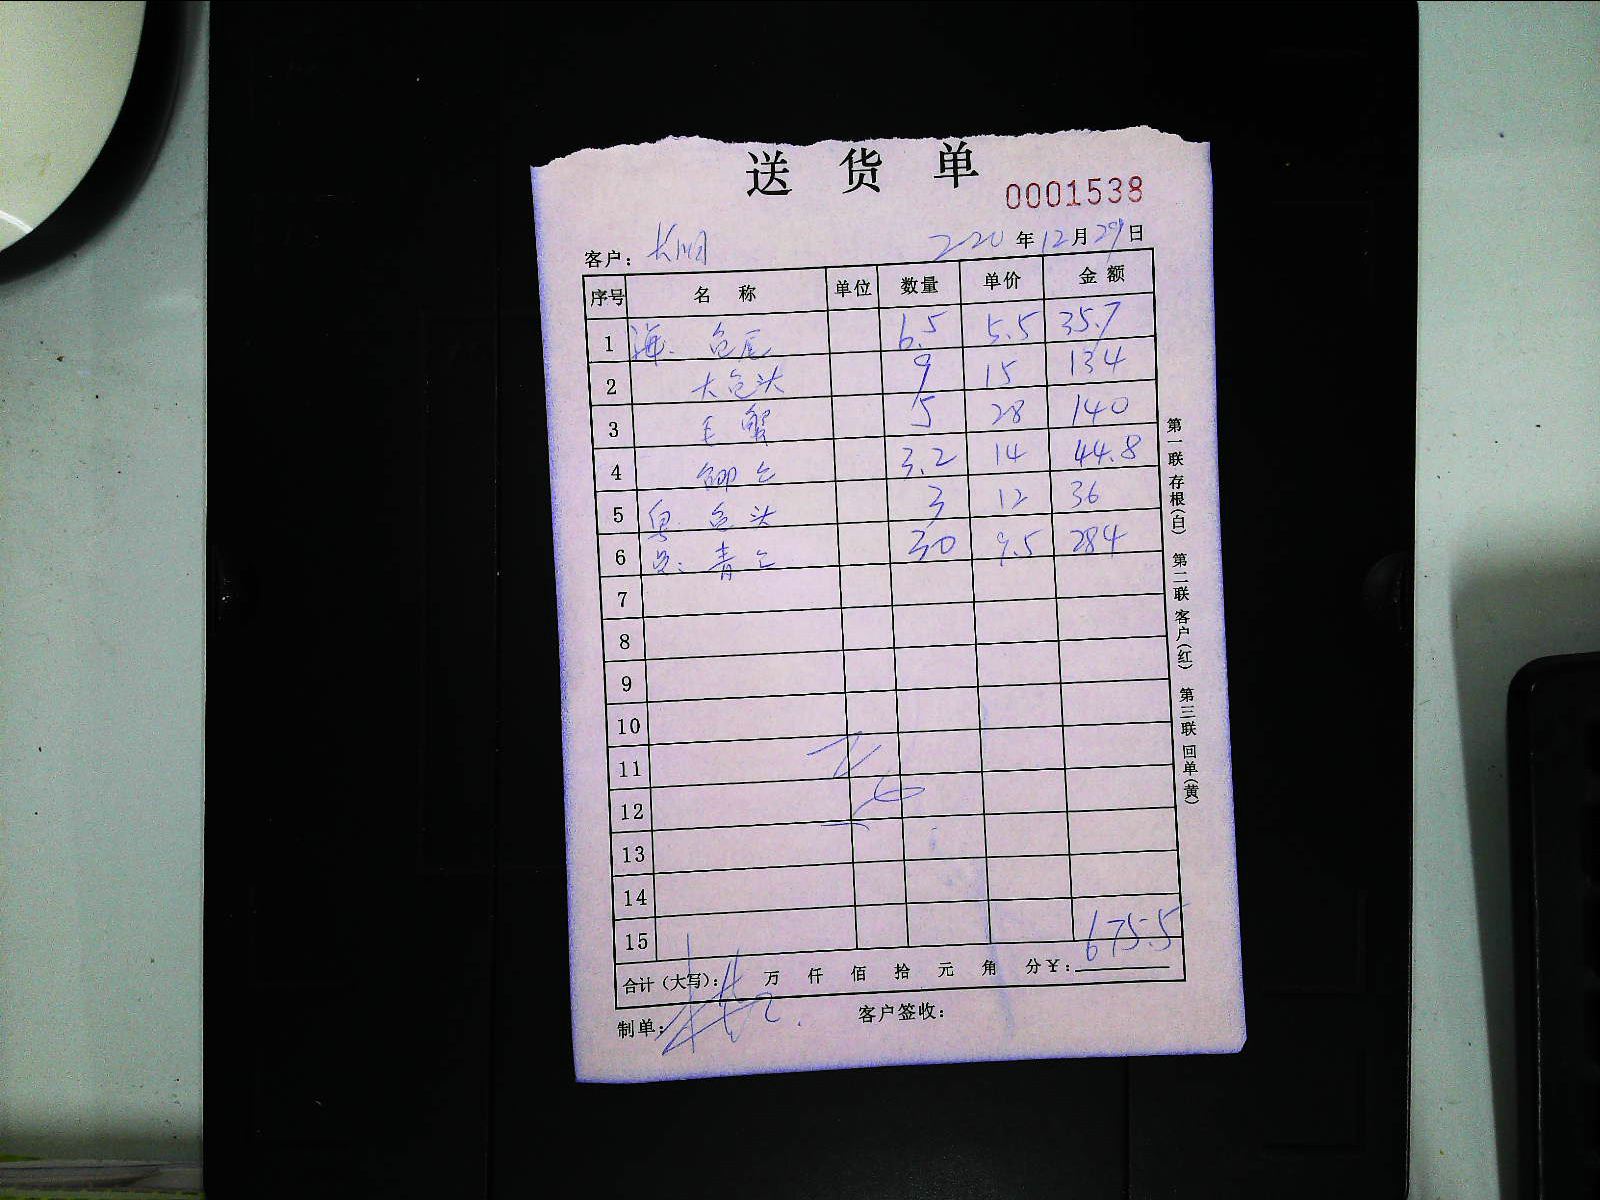 送 货 单
0001538
客户： 长阳 220 年 12 月 29 日
序号 名 称 单位 数量 单价 金 额
1 海. 6.5 5.5 35.7
2 大包头 9 15 134
3 毛蟹 5 28 140
4 3.2 14 44.8
5 包头 3 12 36
6 青 30 9.5 284
7
8
9
10
11
12
13
14
15
合计（大写）： 万 仟 佰 拾 元 角 分 ¥： 675.5
制单： 客户签收：
第一联 存根（白） 第二联 客户（红） 第三联 回单（黄）